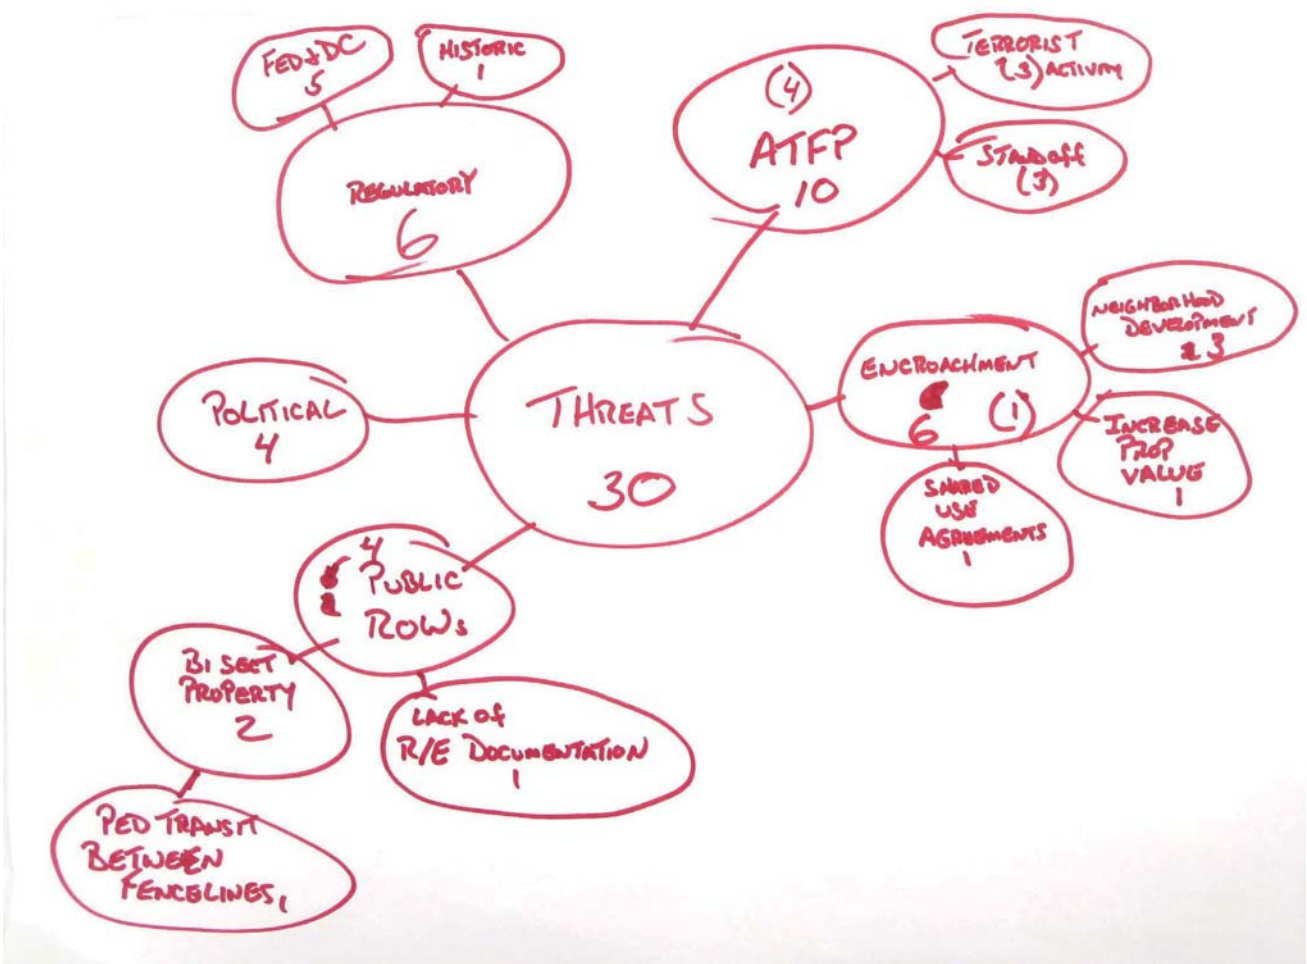 FED + DC
5
HISTORIC
1
REGULATORY
6
(4)
ATFP
10
TERRORIST
(3) ACTIVITY
STANDOFF
(3)
THREATS
30
POLITICAL
4
ENCROACHMENT
6 (1)
NEIGHBORHOOD
DEVELOPMENT
3
INCREASE
PROP
VALUE
1
SHARED
USE
AGREEMENTS
1
4
PUBLIC
ROWs
BISECT
PROPERTY
2
LACK OF
R/E DOCUMENTATION
1
PED TRANSIT
BETWEEN
FENCELINES, 1